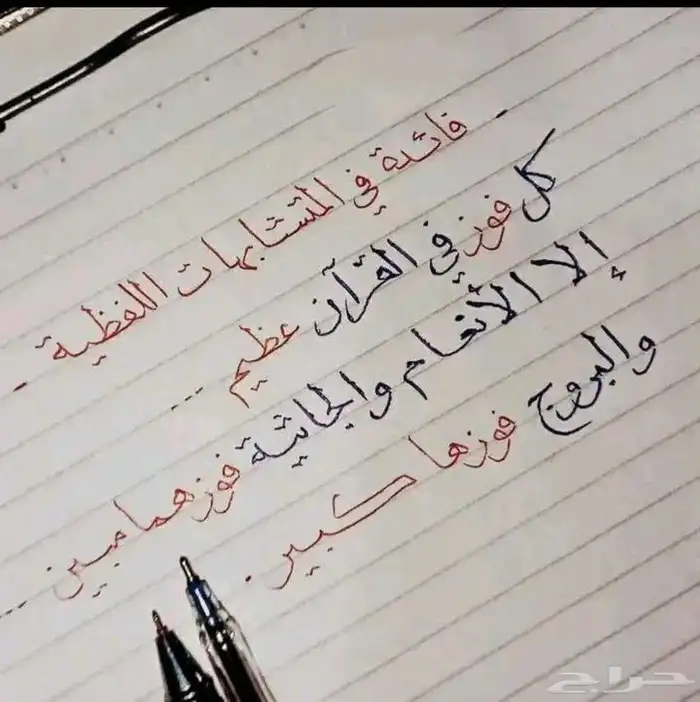 فائدة في المتشابهات اللفظية
كل فوز في القرآن عظيم ...
إلا الأنعام والجاثية فوزهما مبين ...
والبروج فوزها كبير.
حراج